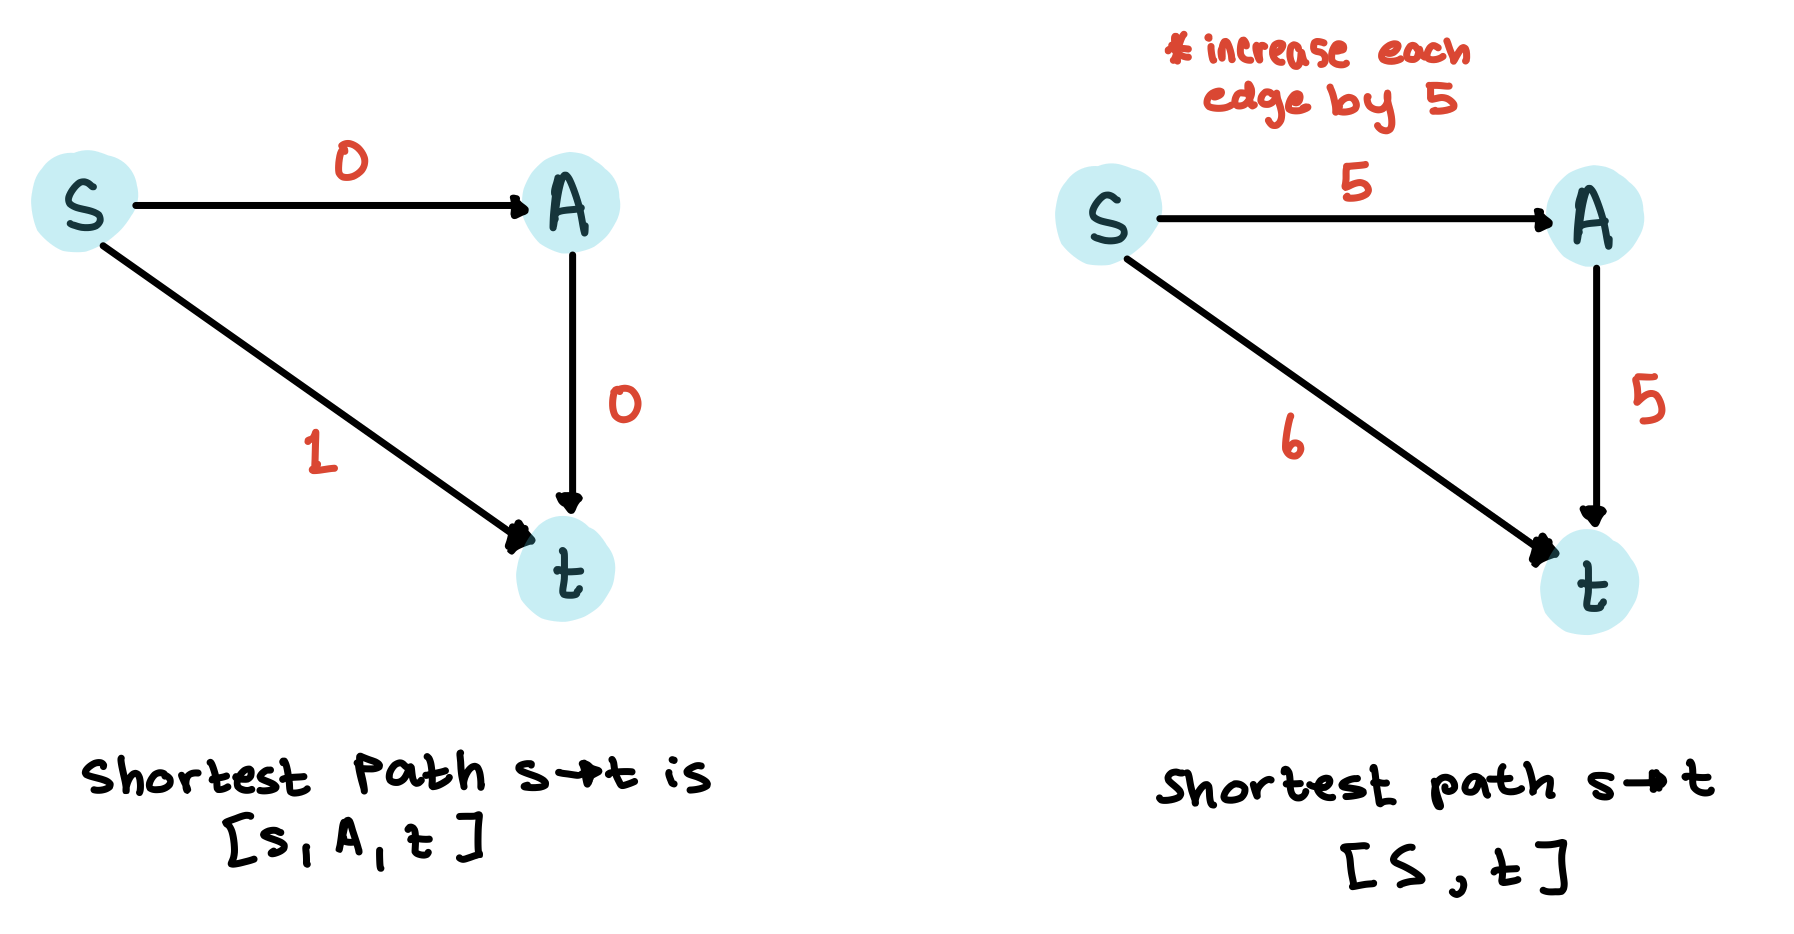 S
0
A
1
0
t
Shortest Path s→t is
[s, A, t]
* increase each
edge by 5
S
5
A
6
5
t
Shortest path s→t
[S, t]